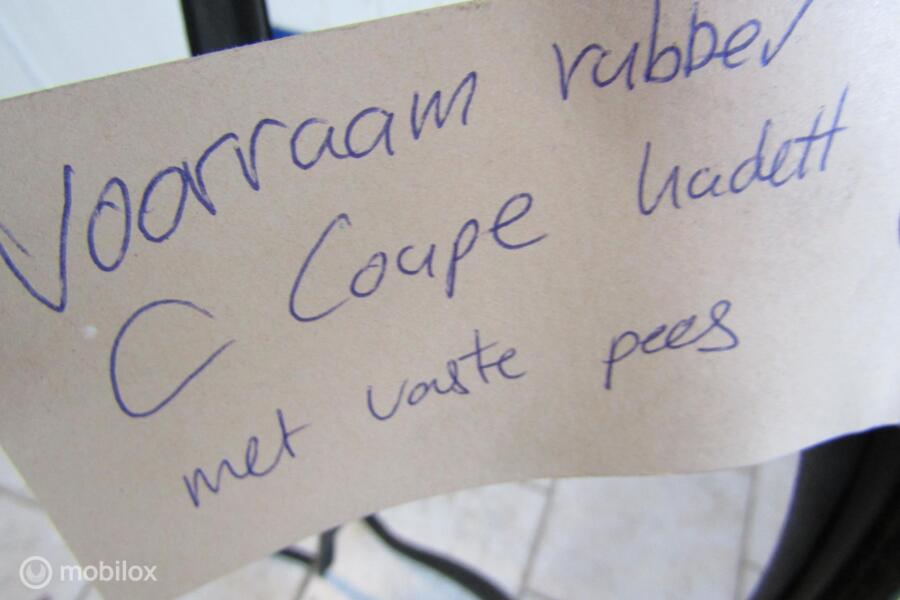 Voorraam rubber
C Coupe kadett
met vaste pees
mobilox